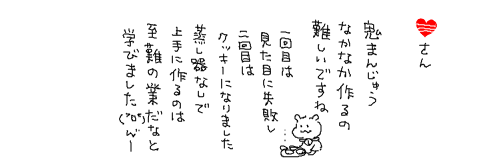 さん
鬼まんじゅう
なかなか作るの
難しいですね
一回目は
見た目に失敗し
二回目は
クッキーになりました
蒸し器なしで
上手に作るのは
至難の業だなと
学びました(°ロ°)んー